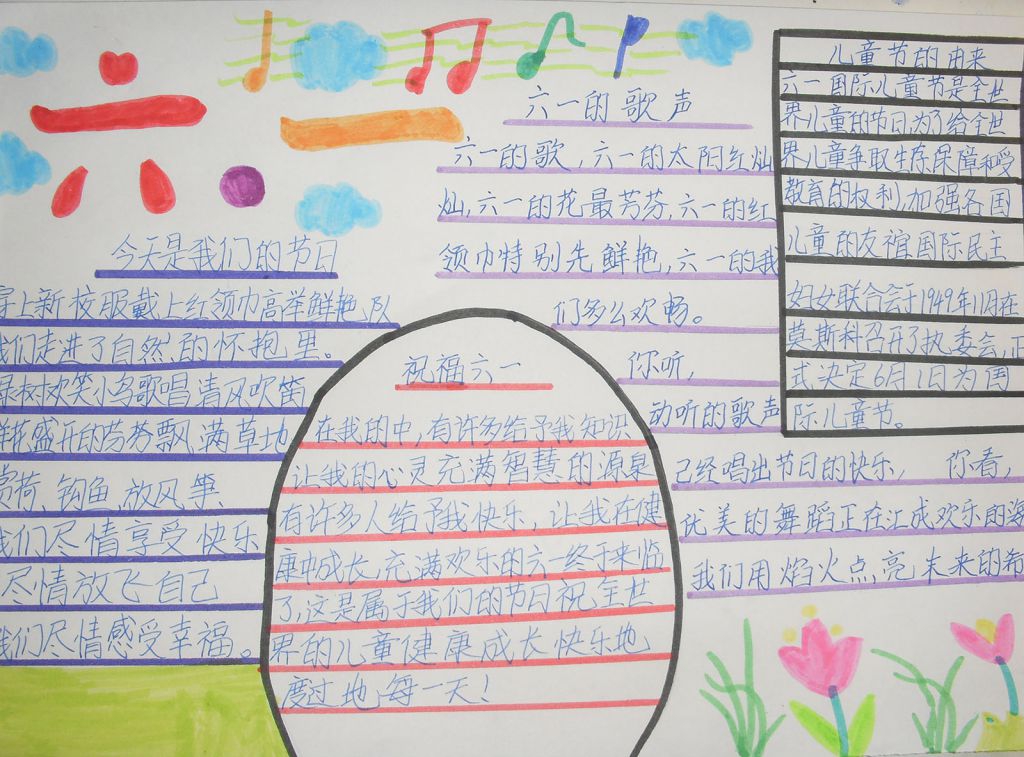 六一
六一的歌声
六一的歌,六一的太阳红灿
灿,六一的花最芳芬,六一的红
领巾特别先鲜艳,六一的我
们多么欢畅。
你听,
动听的歌声
已经唱出节日的快乐, 你看,
优美的舞蹈正在汇成欢乐的海
我们用焰火点亮未来的希
儿童节的由来
六一国际儿童节是全世
界儿童的节日,为了给全世
界儿童争取生存保障和受
教育的权利,加强各国
儿童的友谊国际民主
妇女联合会于1949年11月在
莫斯科召开了执委会,正
式决定6月1日为国
际儿童节。
今天是我们的节日
穿上新校服戴上红领巾高举鲜艳队
我们走进了自然的怀抱里。
绿树欢笑小鸟歌唱清风吹笛
鲜花盛开的芳芬飘满草地
赏荷、钩鱼、放风筝
我们尽情享受快乐
尽情放飞自己
我们尽情感受幸福。
祝福六一
在我的中,有许多给予我知识
让我的心灵充满智慧的源泉
有许多人给予我快乐,让我在健
康中成长,充满欢乐的六一终于来临
了,这是属于我们的节日祝全世
界的儿童健康成长快乐地
度过地每一天!